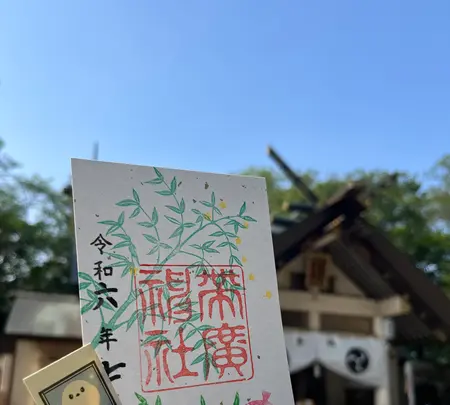 帯廣
神社
令和六年七